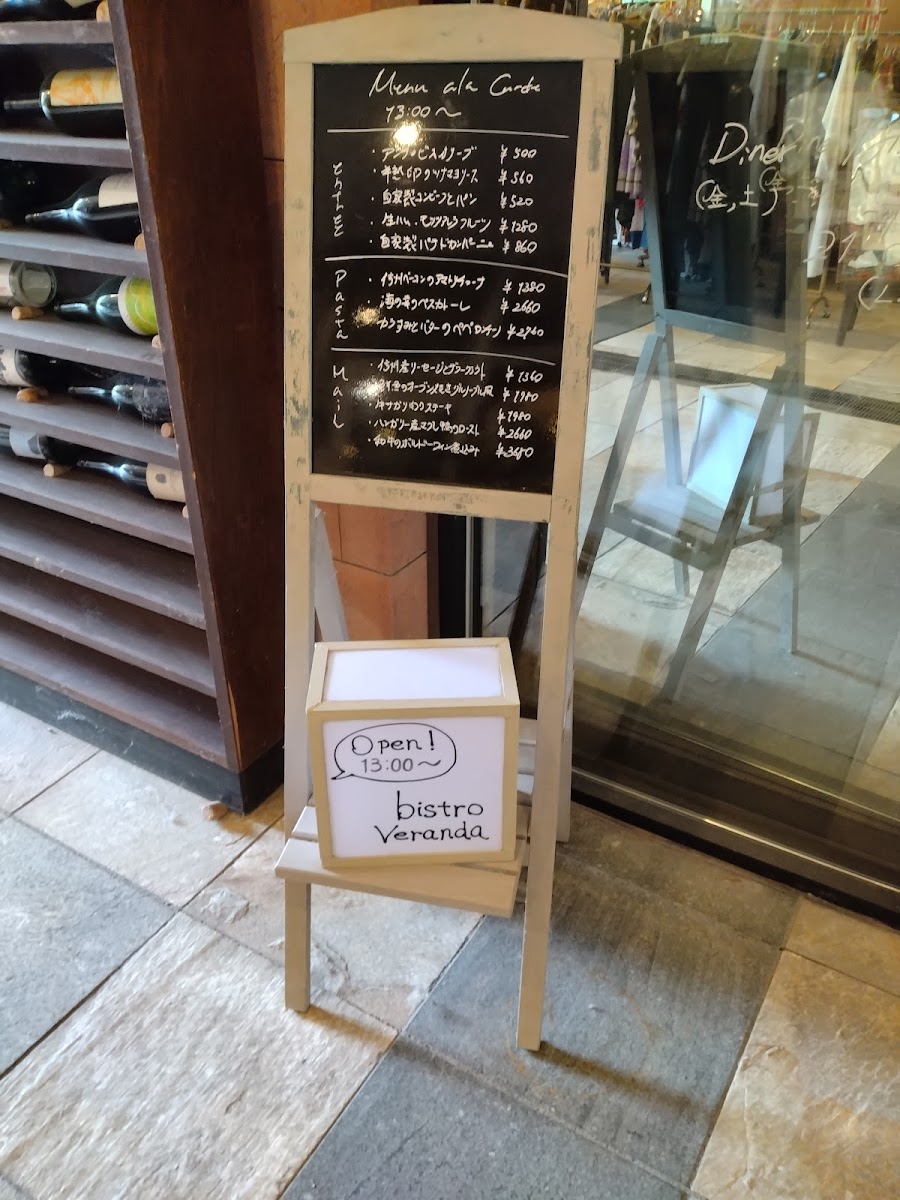 Menu ala Carte
13:00〜
Entree
・アンチョビスオリーブ ¥500
・半熟 のツナマヨソース ¥560
・自家製コンビーフとパン ¥520
・生ハム、モッツァレラフルーツ ¥1280
・自家製パテドカンパーニュ ¥860
Pasta
・信州ベーコンのアマトリチャーナ ¥1380
・海の幸のペスカトーレ ¥2660
・からすみとバターのペペロンチーノ
Main
・信州産ソーセージとザワークラウト ¥1360
のオーブン焼き グルノーブル風 ¥1980
・牛サガリのステーキ ¥1980
・ハンガリー産マグレ鴨のロースト ¥2660
・和牛のボルドーワイン煮込み ¥3680
Open!
13:00〜
bistro
Veranda
Diner
(金,土